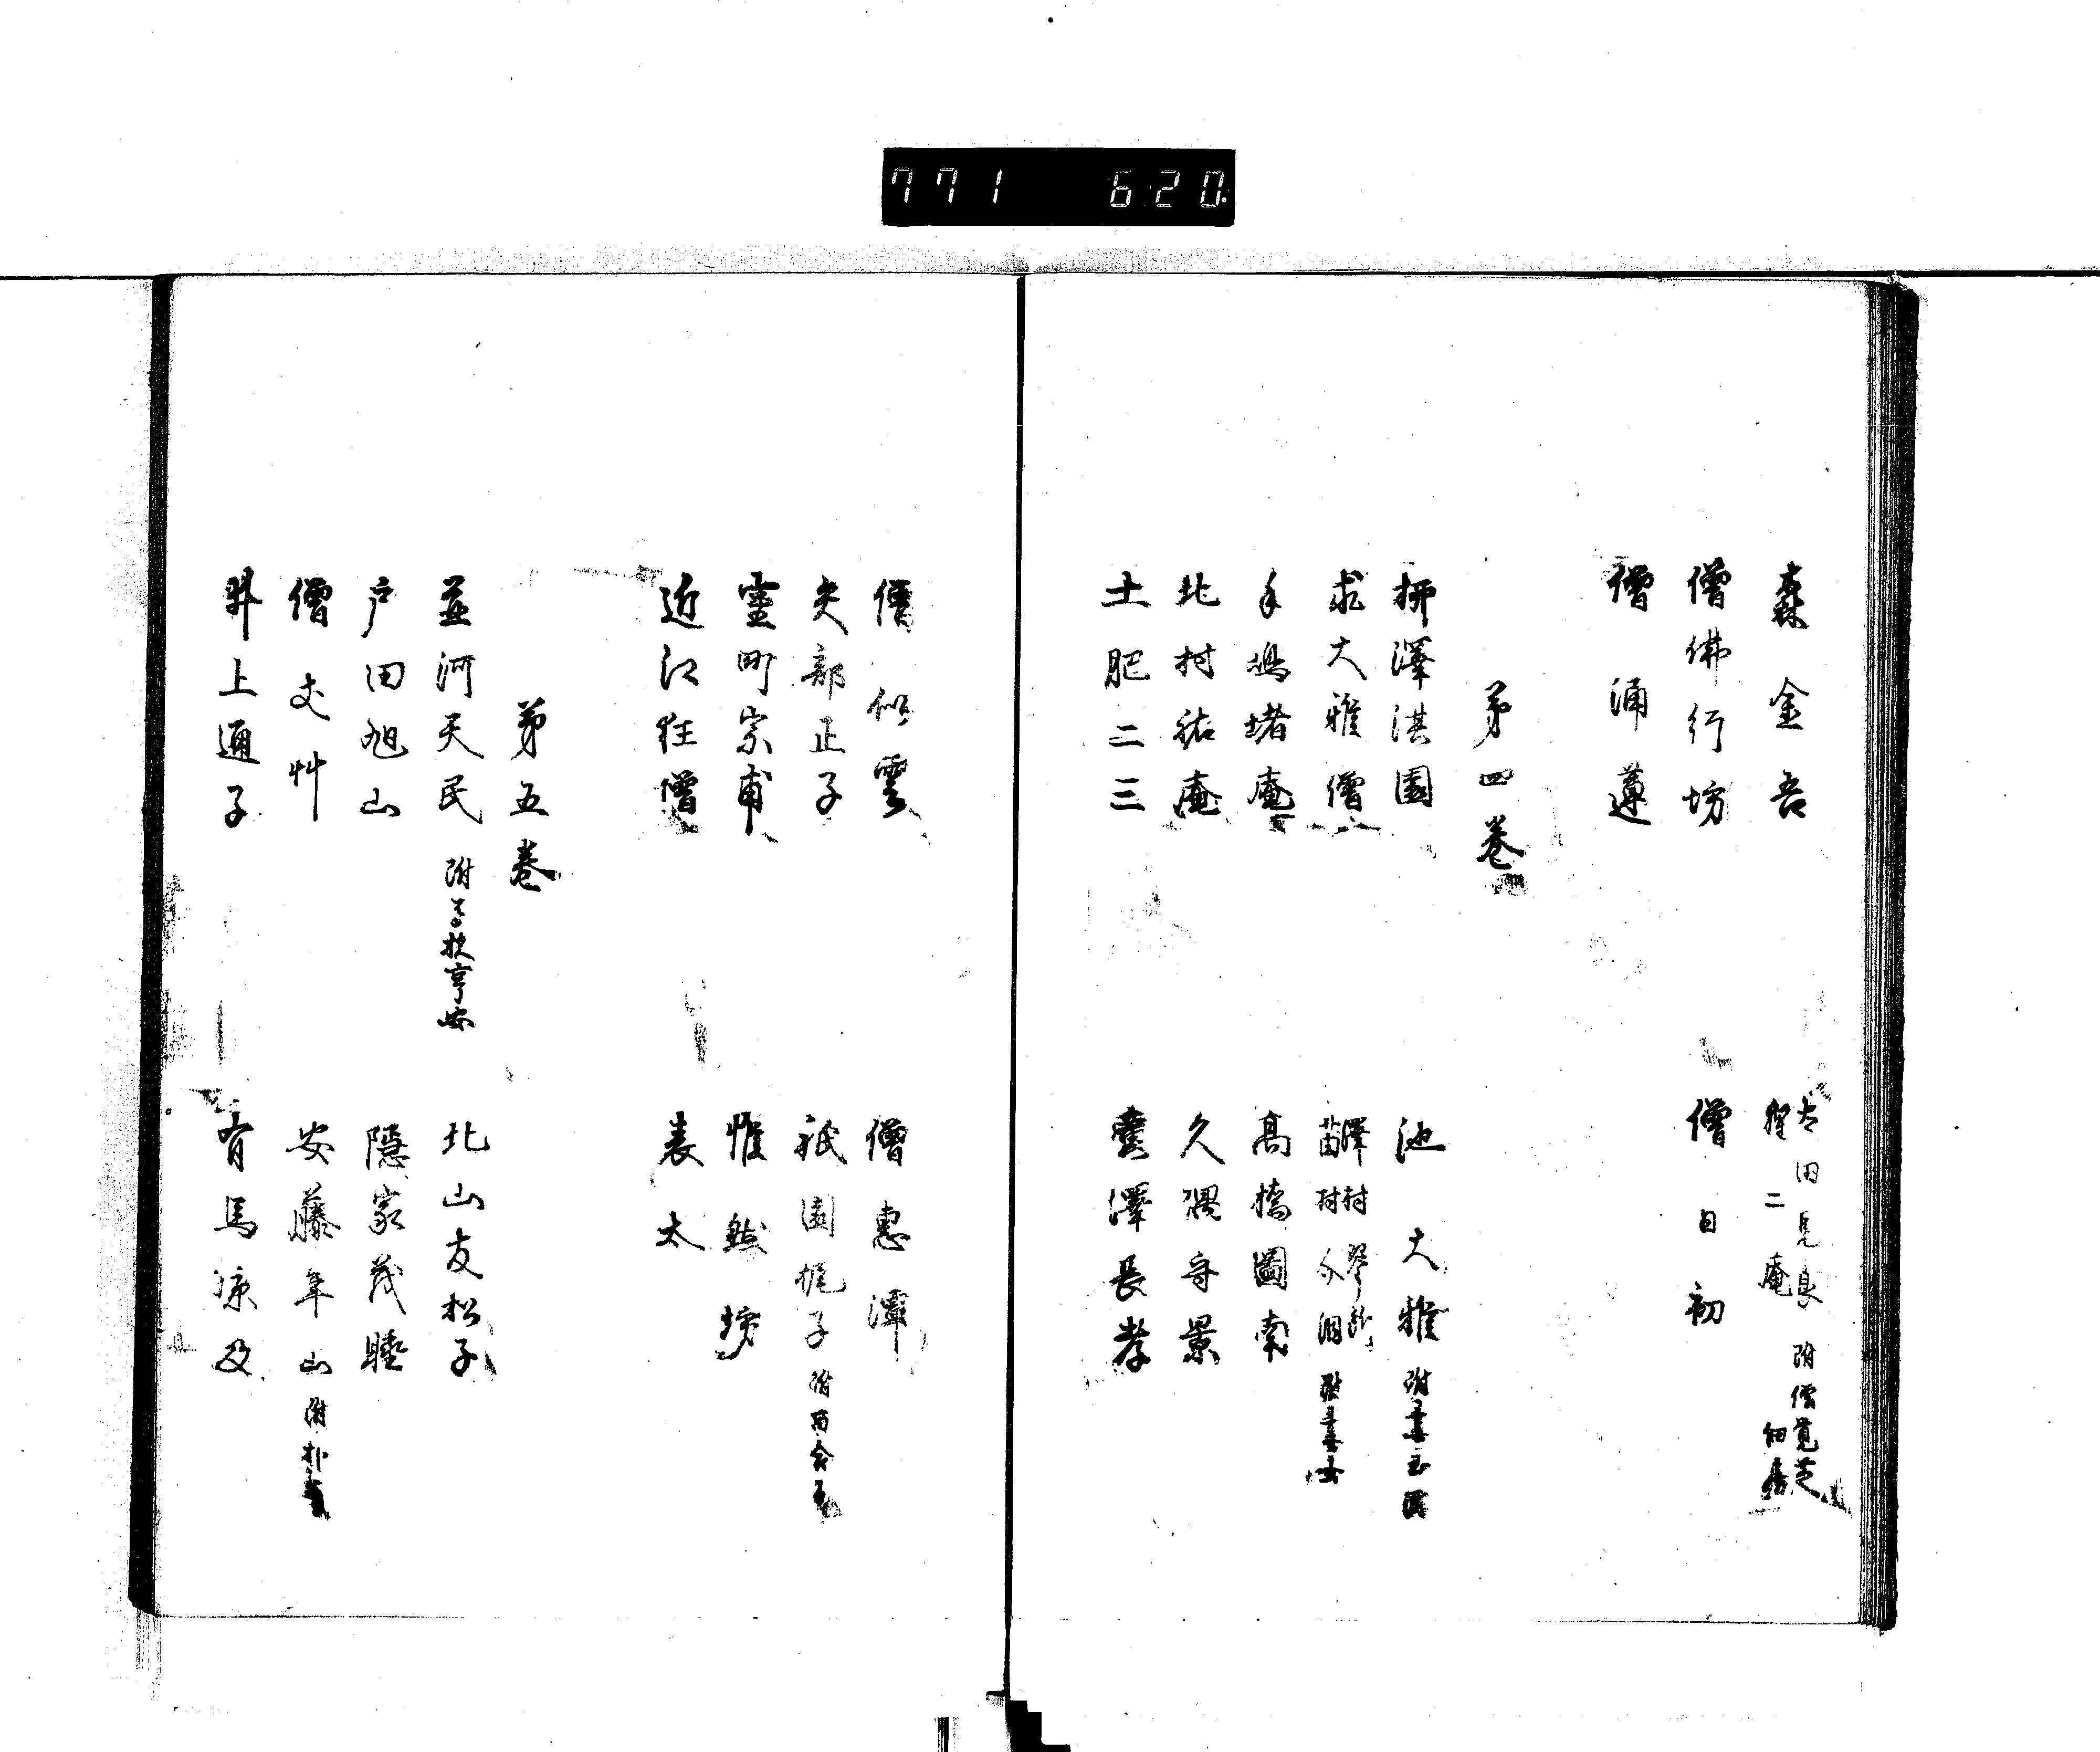 771 620
森金吾
太田見良 附僧覚芝
狸二庵 佃房
僧佛行坊
僧日初
僧涌蓮
第四卷
柳澤淇園
池大雅 附妻玉瀾
求大雅僧
澤村琴所
苗村介洞 附妻女
手嶋堵庵
高橋圖南
北村祐庵
久隅守景
土肥二三
雲澤長孝
僧似雲
僧惠潭
矢部正子
祇園梶子 附百合
靈町宗甫
惟然坊
近江狂僧
表太
第五卷
並河天民 附
亨安
北山友松子
戸田旭山
隱家茂睡
僧丈艸
安藤年山 附朴
井上通子
有馬凉及